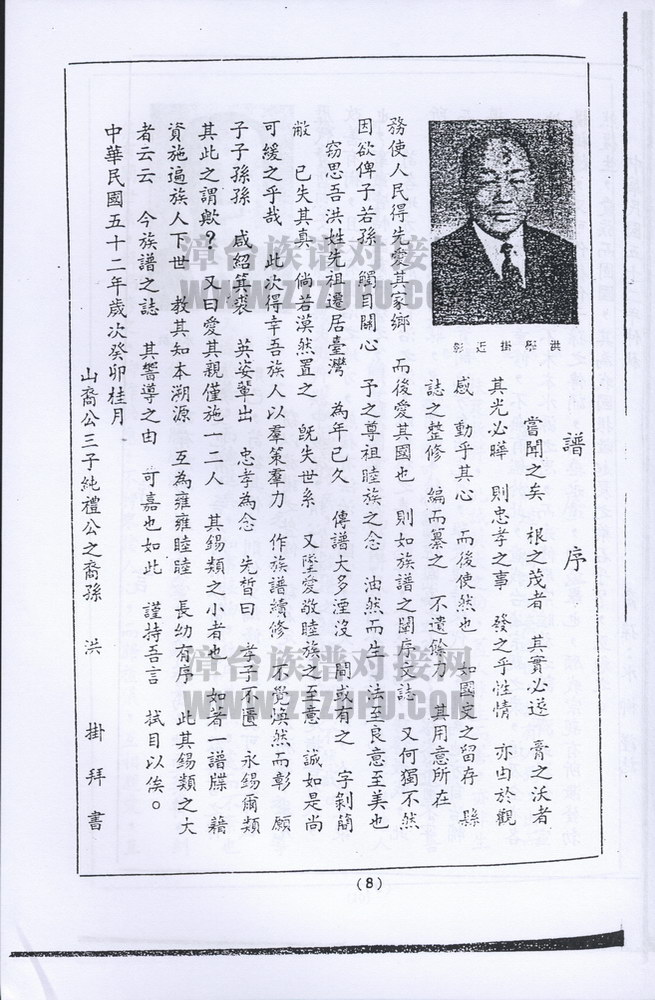 譜序
嘗聞之矣 根之茂者 其實必遂 膏之沃者
其光必曄 則忠孝之事 發之乎性情 亦由於觀
感 動乎其心 而後使然也 如國史之留存 縣
誌之整修 編而纂之 不遺餘力 其用意所在
務使人民得先愛其家鄉 而後愛其國也 則如族譜之闡序文誌 又何獨不然
因欲俾子若孫 觸目關心 予之尊祖睦族之念 油然而生 法至良意至美也
竊思吾洪姓先祖遷居臺灣 為年已久 傳譜大多湮沒 間或有之 字剝簡
敝 已失其真 倘若漠然置之 旣失世系 又墮愛敬睦族之至意 誠如是尚
可緩之乎哉 此次得幸吾族人以羣策羣力 作族譜續修 不覺煥然而彰 願
子子孫孫 咸紹箕裘 英姿輩出 忠孝為念 先晢曰 孝子不匱 永錫爾類
其此之謂歟？ 又曰愛其親僅施一二人 其錫類之小者也 如著一譜牒 藉
資施遍族人下世 教其知本溯源 互為雍雍睦睦 長幼有序 此其錫類之大
者云云 今族譜之誌 其響導之由 可嘉也如此 謹持吾言 拭目以俟。
中華民國五十二年歲次癸卯桂月
山裔公三子純禮公之裔孫 洪 掛 拜 書
洪學掛近影
(8)
漳台族谱对接网
WWW.ZTZUPU.COM
漳台族谱对接网
WWW.ZTZUPU.COM